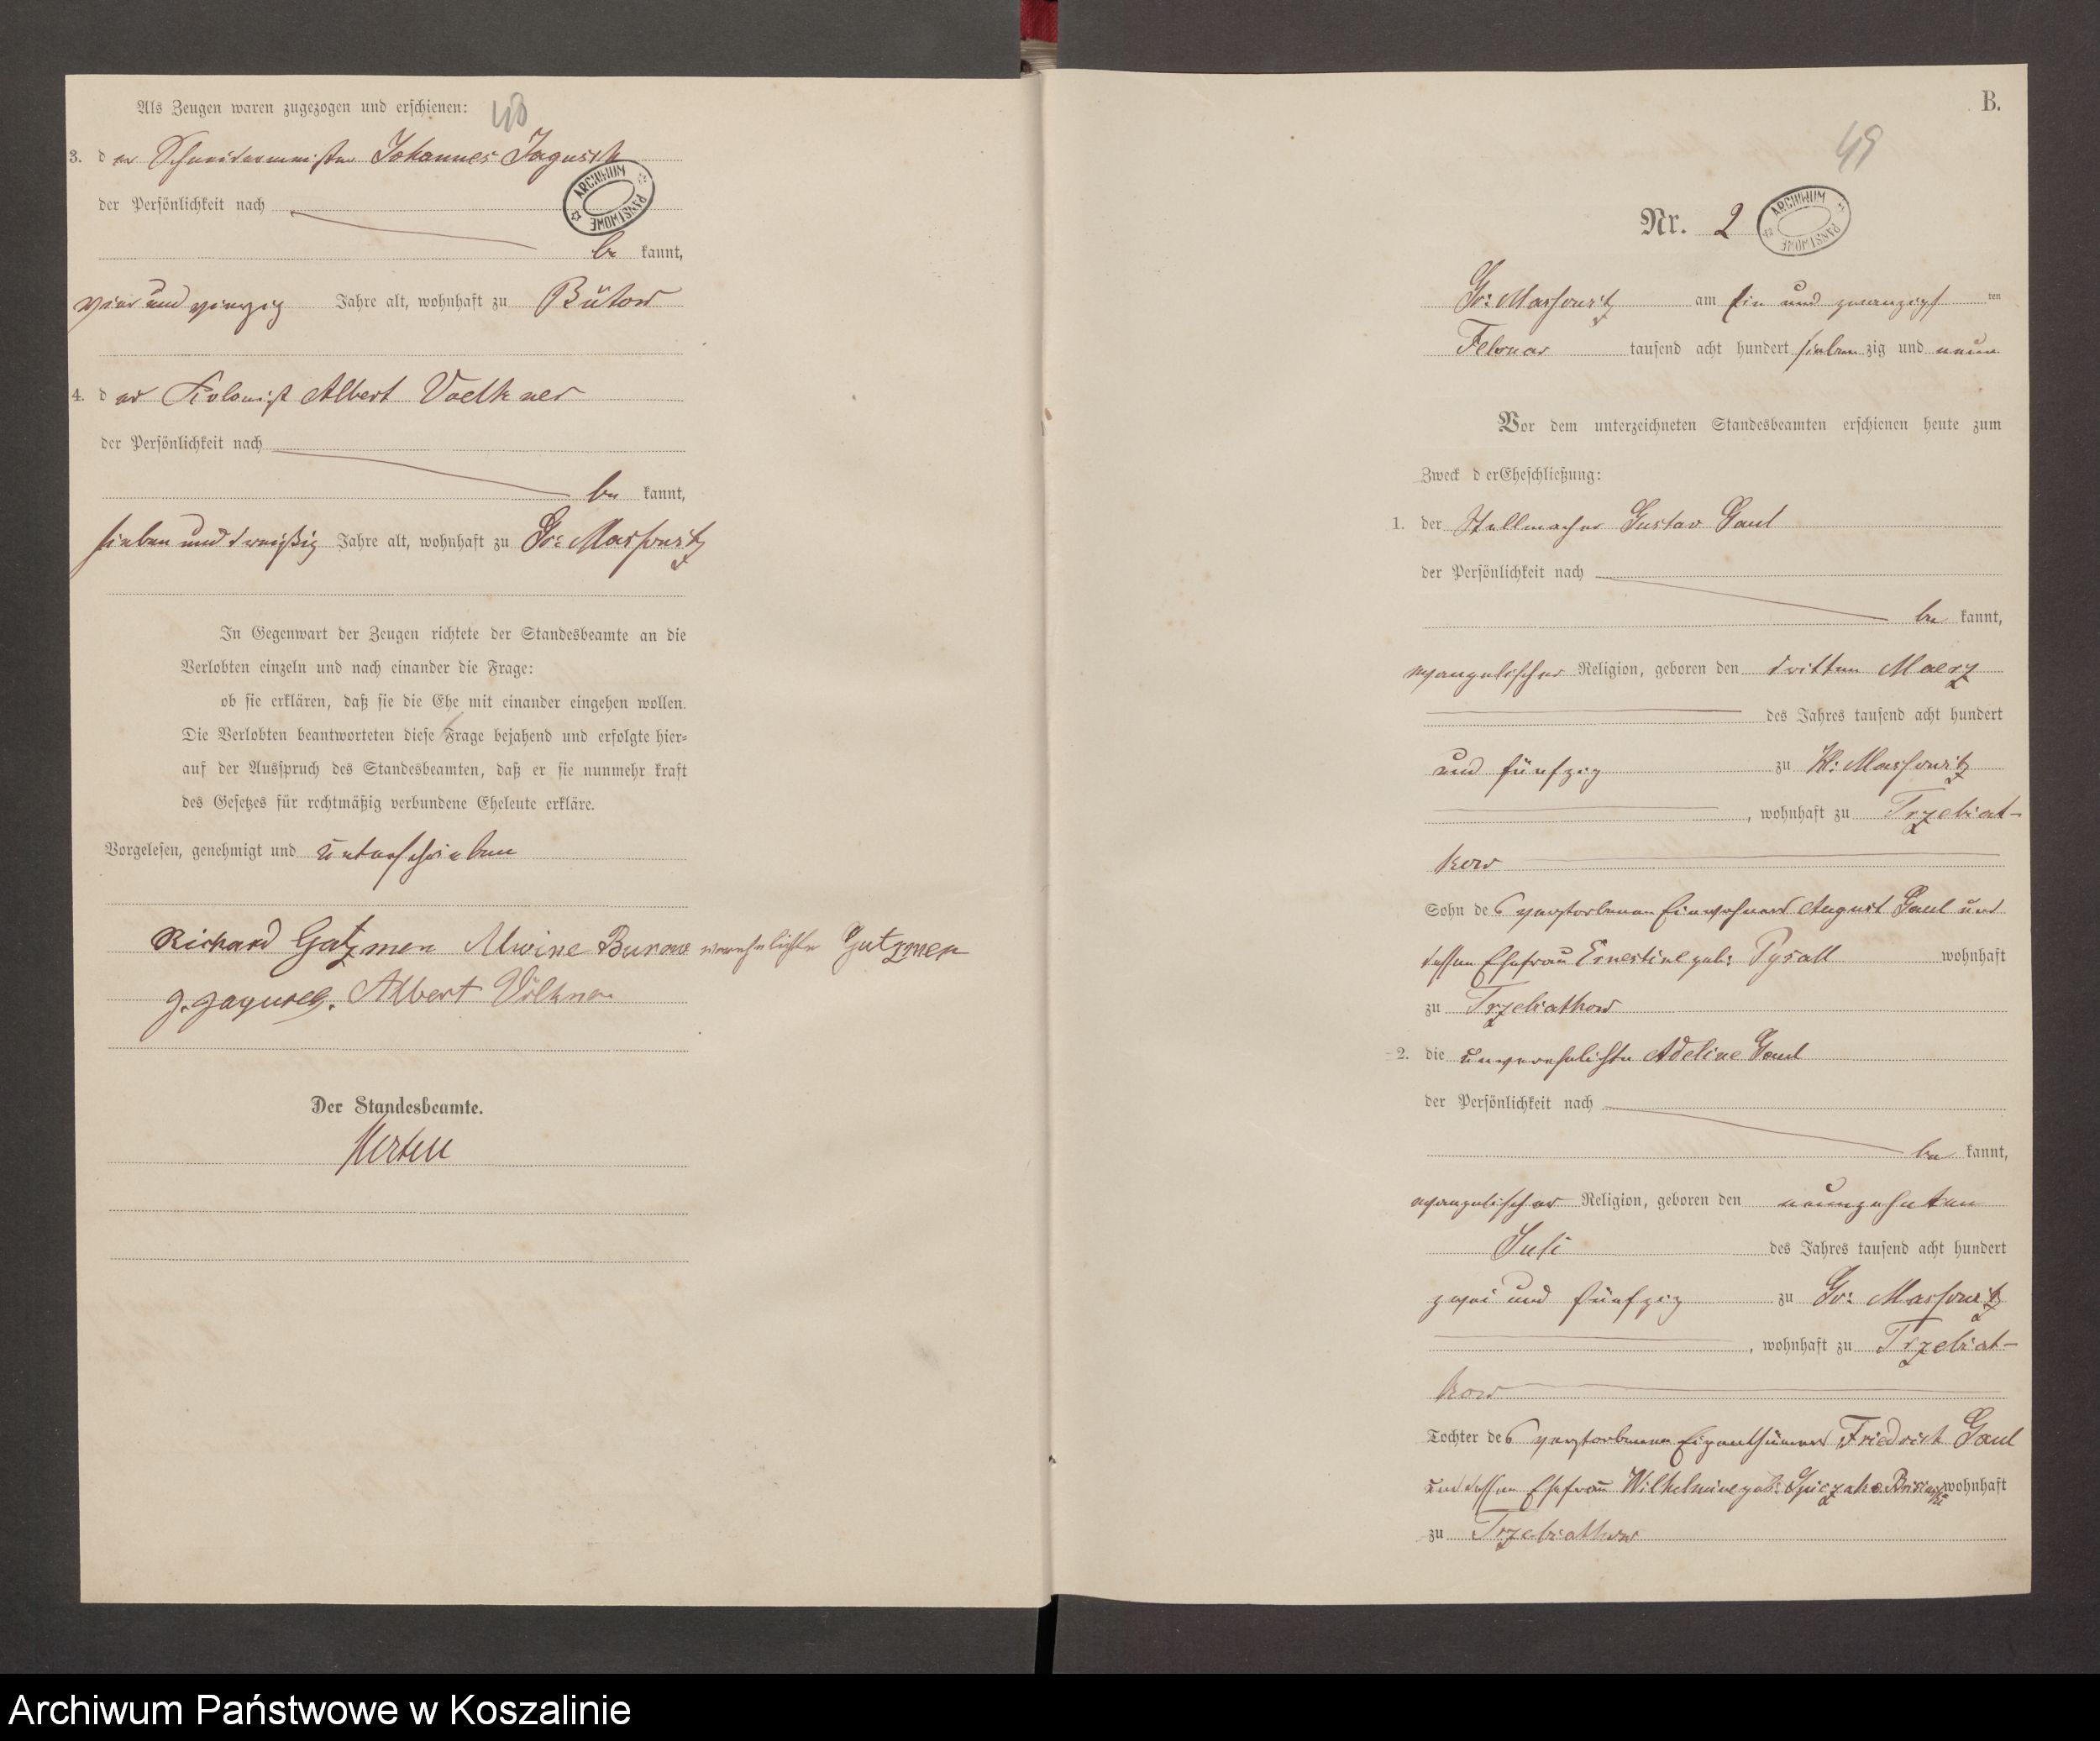 Als Zeugen waren zugezogen und erschienen:
48
3. der Schneidermeister Johannes Jagusch
ARCHIWUM PAŃSTWOWE
der Persönlichkeit nach
be kannt,
vier und vierzig Jahre alt, wohnhaft zu Bütow
4. der Kolonist Albert Voelkner
der Persönlichkeit nach
be kannt,
sieben und dreißig Jahre alt, wohnhaft zu Gr: Massowitz
In Gegenwart der Zeugen richtete der Standesbeamte an die
Verlobten einzeln und nach einander die Frage:
ob sie erklären, daß sie die Ehe mit einander eingehen wollen.
Die Verlobten beantworteten diese Frage bejahend und erfolgte hier-
auf der Ausspruch des Standesbeamten, daß er sie nunmehr kraft
des Gesetzes für rechtmäßig verbundene Eheleute erkläre.
Vorgelesen, genehmigt und unterschrieben
Richard Gatzmen Alwine Bunow verehelichte Gutzmen
J. Jagusch. Albert Völkner
Der Standesbeamte.
B.
49
Nr. 2
ARCHIWUM PAŃSTWOWE
Gr: Massowitz am ein und zwanzigsten
Februar tausend acht hundert siebenzig und neun
Vor dem unterzeichneten Standesbeamten erschienen heute zum
Zweck der Eheschließung:
1. der Stellmacher Gustav Gaul
der Persönlichkeit nach
be kannt,
evangelischer Religion, geboren den dritten Maerz
des Jahres tausend acht hundert
und fünfzig zu Kl: Massowitz
, wohnhaft zu Trzebiat-
kow
Sohn des verstorbenen Einwohners August Gaul und
dessen Ehefrau Ernestine geb: Pysall wohnhaft
zu Trzebiatkow
2. die unverehelichte Adeline Gaul
der Persönlichkeit nach
be kannt,
evangelischer Religion, geboren den neunzehnten
Juli des Jahres tausend acht hundert
zwei und fünfzig zu Gr: Massowitz
, wohnhaft zu Trzebiat-
kow
Tochter des verstorbenen Eigenthümers Friedrich Gaul
und dessen Ehefrau Wilhelmine geb: wohnhaft
zu Trzebiatkow
Archiwum Państwowe w Koszalinie